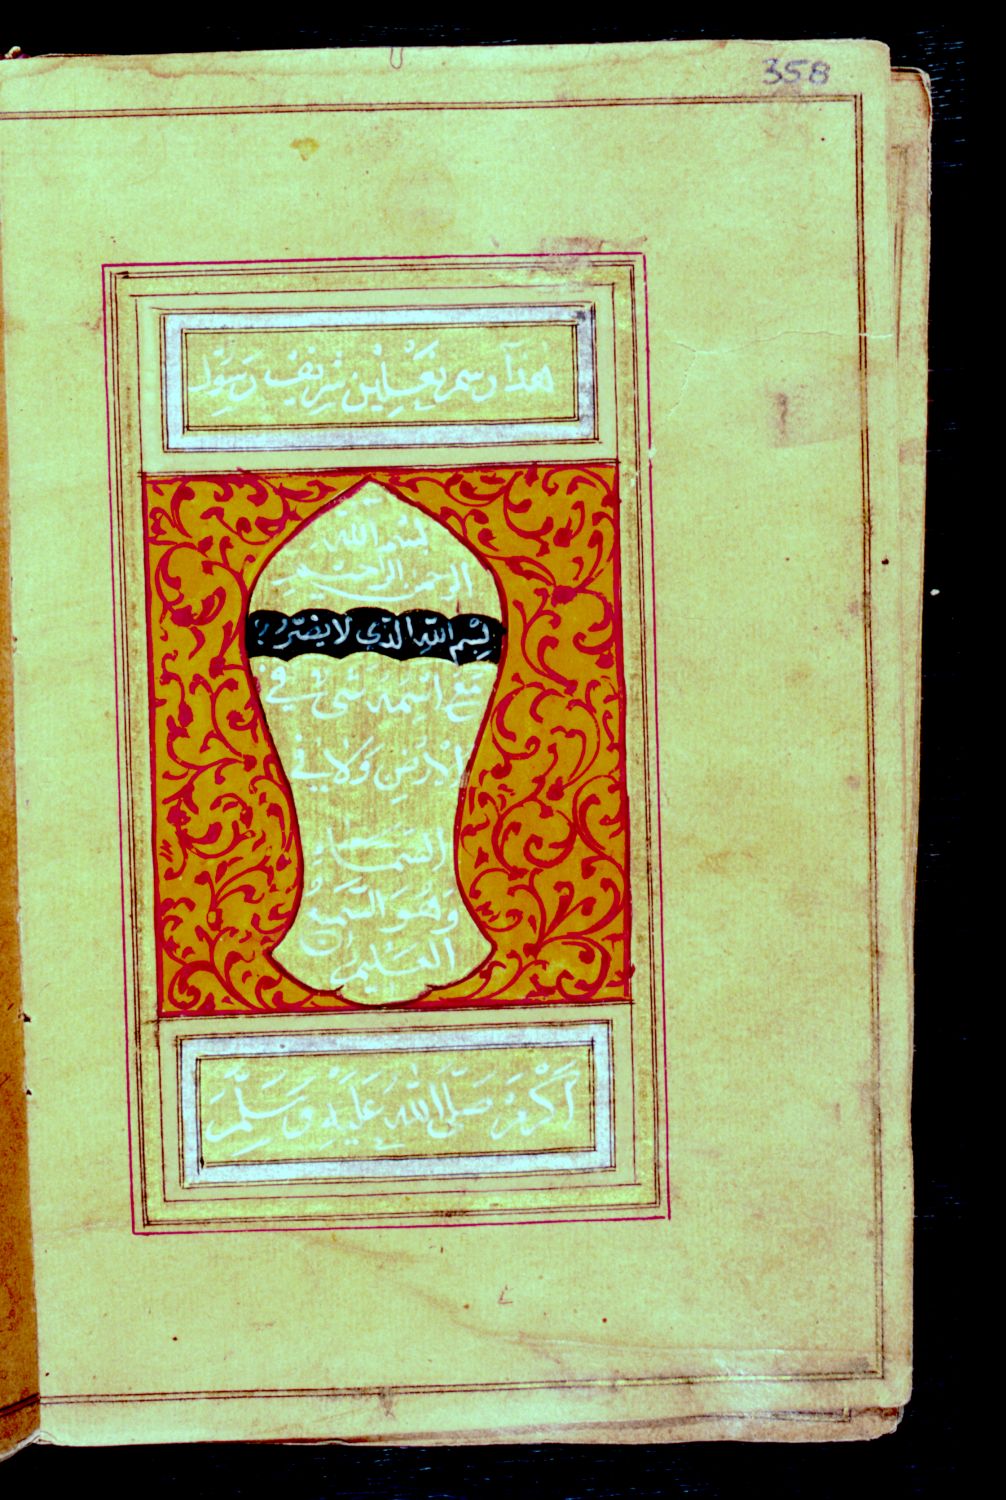 358
هٰذَا رسم نَعْلَيْن شريف رَسُول
بسم الله
الرحمن الرحيم
بِسْمِ اللهِ الذي لَا يضرّ
مَعَ اسْمِهِ شَىْءٌ فِي
الْأَرْضِ وَلَا فِي
السَّمَاءِ
وَهُوَ السَّمِيعُ
العَلِيمُ
أَكْرَمْ صَلَّى اللهُ عَلَيْهِ وَسَلَّمَ